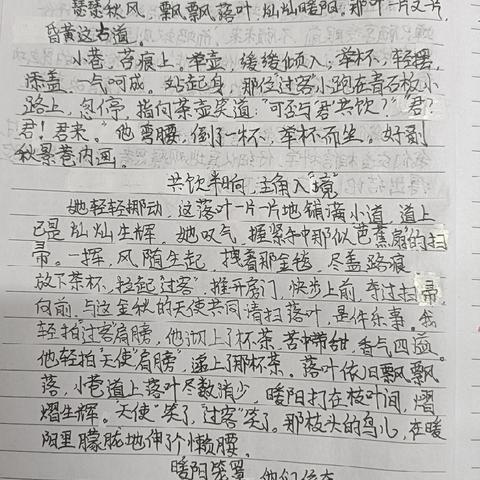 瑟瑟秋风,飘飘落叶,灿灿暖阳。那叶一片又一片,
昏黄这古道。
小巷,苔痕上。举壶,缓缓倾入;举杯,轻摆,
添盖,一气呵成。站起身,那位"过客"小跑在青石板小
路上,忽停,指向茶壶笑道:"可否与君共饮?""君?
君!君来。"他弯腰,倒了一杯,举杯而坐。好副
秋景巷内画。
共饮半晌,主角入"境"
她轻轻挪动,这落叶一片一片地铺满小道,道上
已是灿灿生辉。她叹气,握紧手中那似芭蕉扇的扫
帚。一挥,风随生起,拽着那金色,尽盖路痕
放下茶杯,拉起"过客",推开房门,快步上前,夺过扫帚
向前。与这金秋的天使共同清扫落叶,是件乐事。我
轻拍"过客"肩膀,他沏上了杯茶。苦中带甜,香气四溢。
他轻拍"天使"肩膀,递上了那杯茶。落叶依旧飘飘
落,小巷道上落叶尽数消少,暖阳打在枝叶间,熠
熠生辉。天使"笑了,"过客"笑了。那枝头的鸟儿,在暖
阳里朦胧地伸了个懒腰。
暖阳笼罩,他们